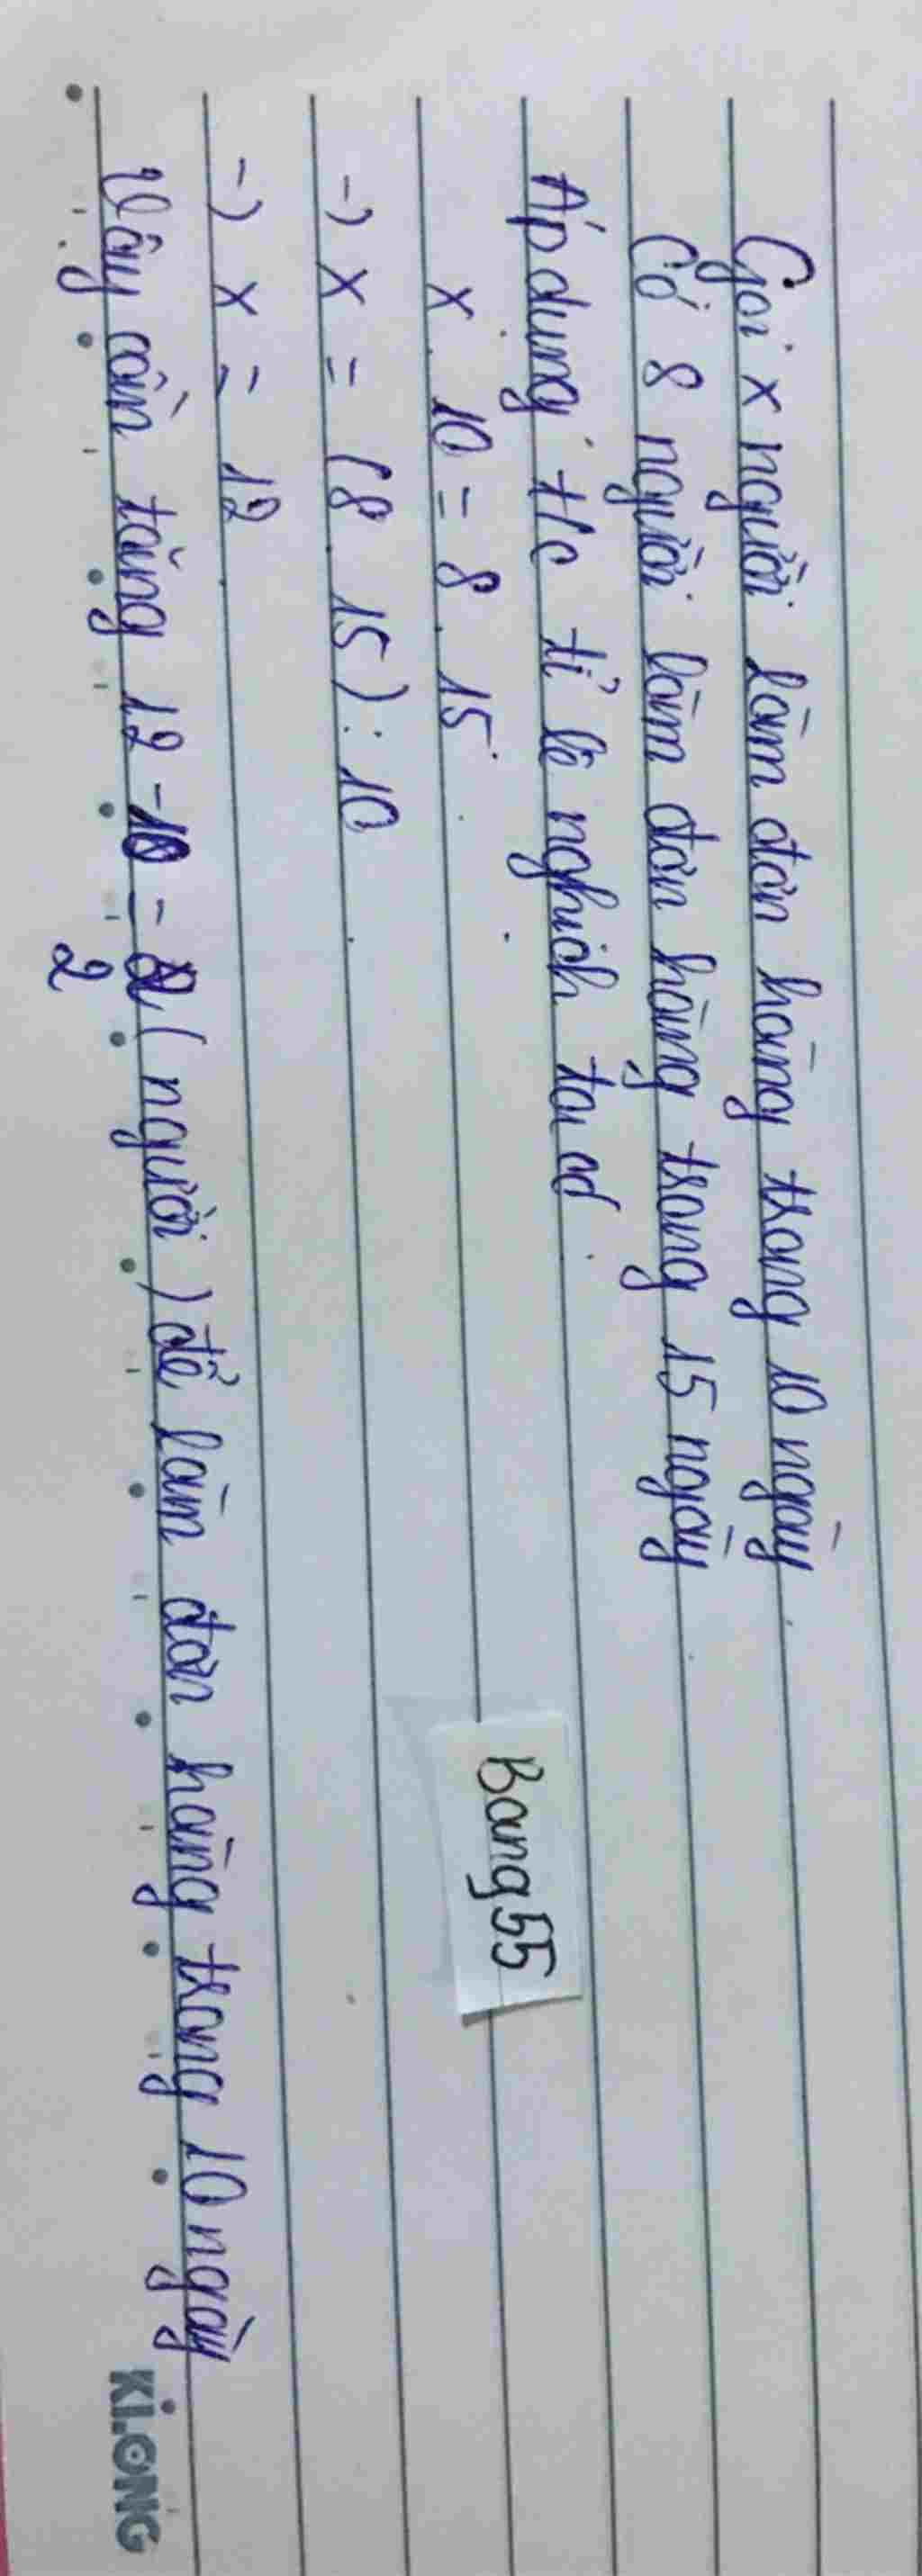 Gọi x người làm đơn hàng trong 10 ngày
Có 8 người làm đơn hàng trong 15 ngày
Áp dụng t/c tỉ lệ nghịch ta có
x . 10 = 8 . 15
-) x = (8 . 15) : 10
-) x = 12
Vậy cần tăng 12 - 10 = 2 (người) để làm đơn hàng trong 10 ngày
2
Bang55
KiLONG